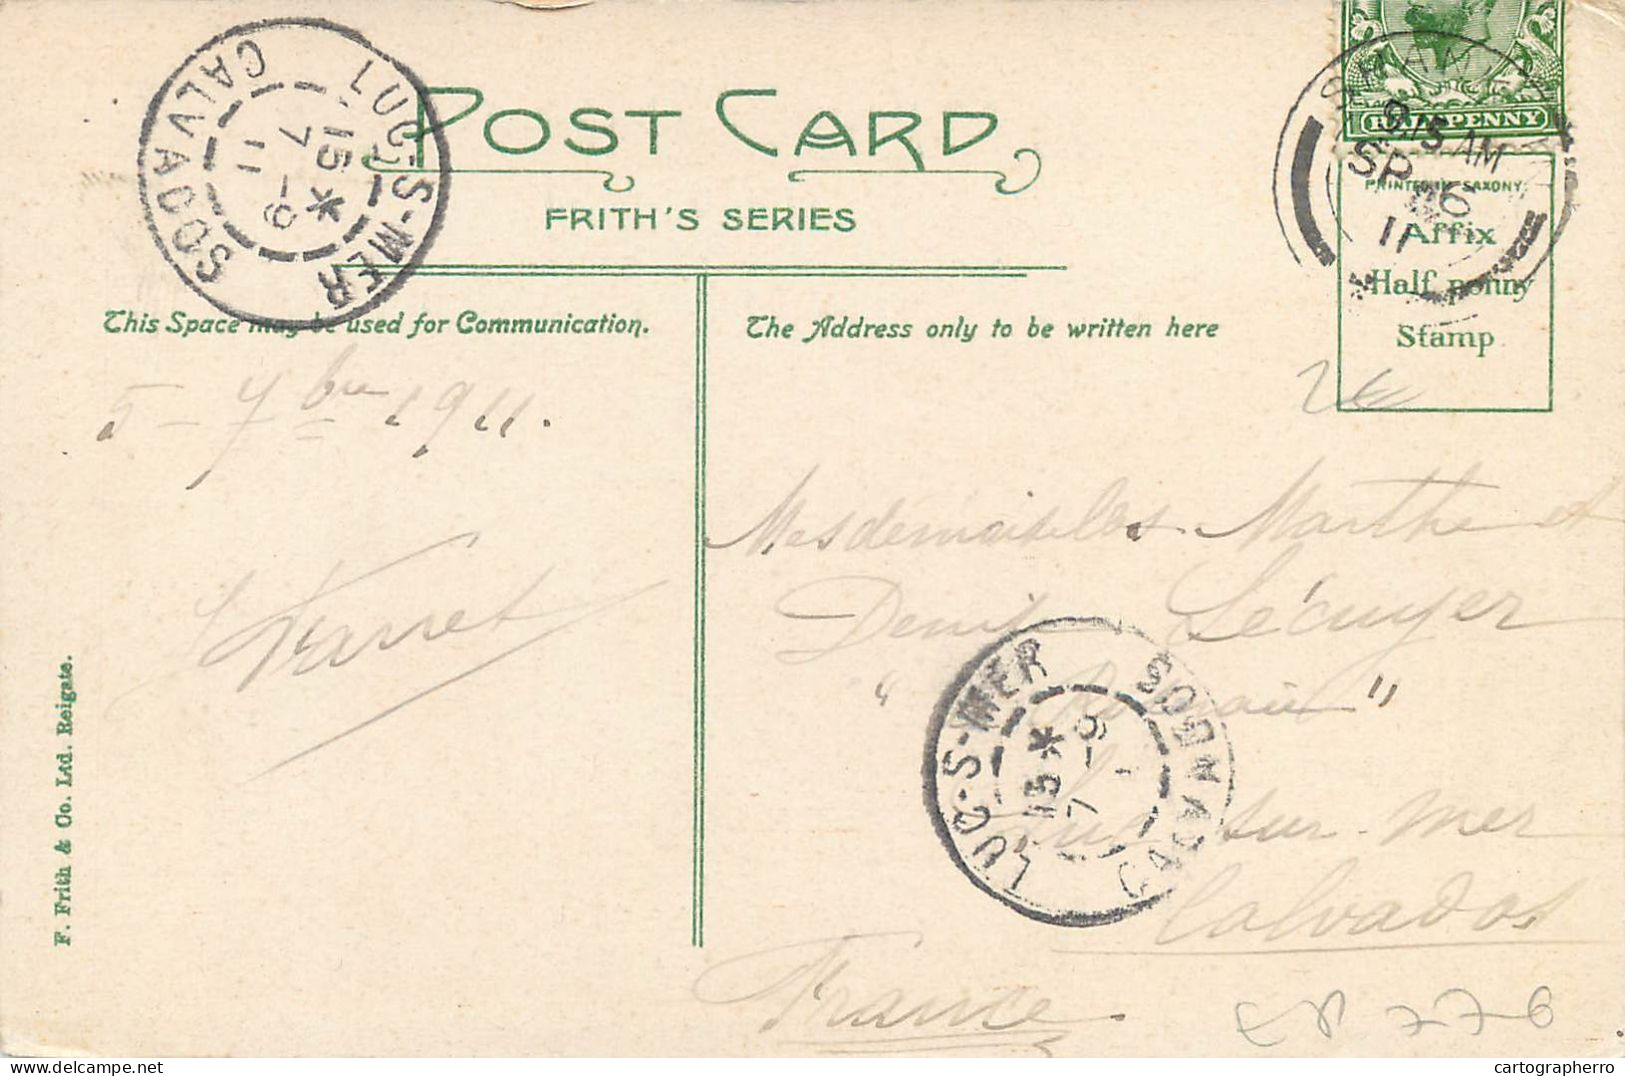 POST CARD
FRITH'S SERIES
This Space may be used for Communication.
The Address only to be written here
HALFPENNY
PRINTED IN SAXONY
Affix
Half penny
Stamp
9.15 AM
SP 6
11
LUC-S-MER
CALVADOS
15 *
7 -9
11
5 - 7bre 1911.
Mesdemoiselles Marthe et
Denise Lécuyer
"
"
Luc sur mer
Calvados
France.
LUC-S-MER
CALVADOS
15 *
7 -9
F. Frith & Co. Ltd. Reigate.
cartographerro